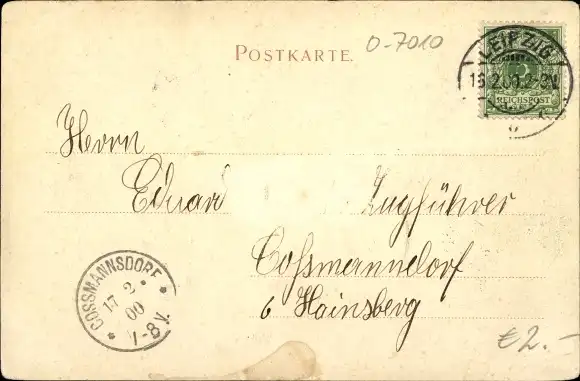 D-7010
POSTKARTE.
LEIPZIG
16.2.00.2-3V.
5
REICHSPOST
Herrn
Eduard Zugführer
Coßmannsdorf
b Hainsberg
COSSMANNSDORF
17 2
00
7-8V.
€2.-